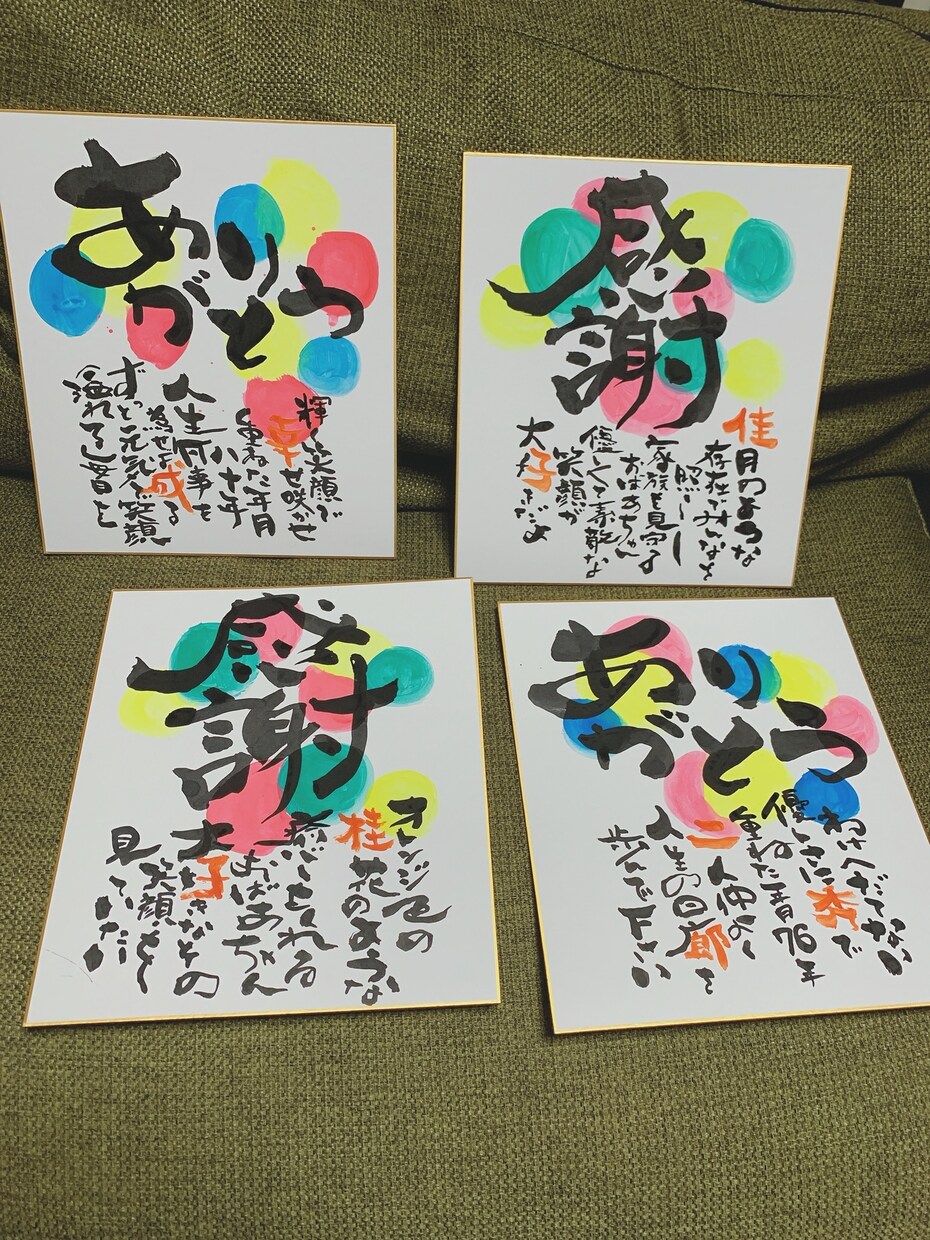 あり
がとう
輝く笑顔で
幸せ咲かせ
重ねた年月
八十年
人生何事を
為せば成る
ずっと元気で笑顔
溢れてる毎日を
感
謝
佳月のような
存在でみんなを
照らし
家族を見守る
おばあちゃん
優しくて素敵な
笑顔が
大好きだよ
感
謝
オレンジ色の
桂花のような
癒しをくれる
おばあちゃん
大好きなその
笑顔ずっと
見ていたい
あり
がとう
わけへだてない
優しさに秀で
重ねた年月76年
二人仲よく
人生の回廊を
歩んで下さい